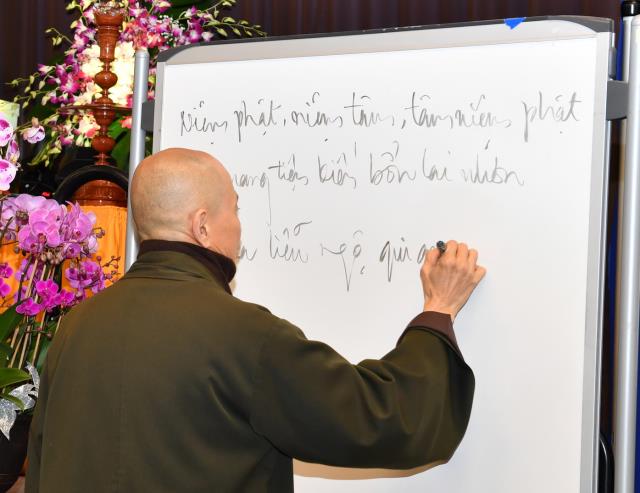 Niệm phật, niệm tâm, tâm niệm phật
tiện kiến bổn lai nhơn
liễu ngộ qui